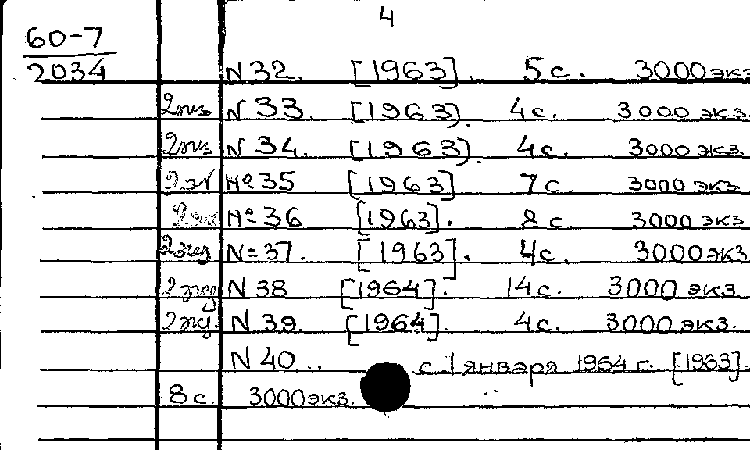 4
60-7
2034
N 32. [1963]. 5 с. 3000 экз
2 экз N 33. [1963). 4 с. 3000 экз.
2 экз N 34. [1963). 4 с. 3000 экз.
2 эк № 35 [1963] 7 с 3000 экз
2 экз № 36 [1963]. 8 с 3000 экз
2 экз № 37. [1963]. 4 с. 3000 экз
2 экз N 38 [1964]. 14 с. 3000 экз.
2 экз. N 39. [1964]. 4 с. 3000 экз.
N 40 .. с 1 января 1964 г. [1963].
8 с. 3000 экз.